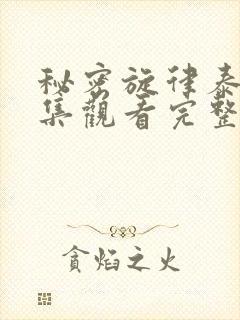 秘密旋律泰
集觀看完整
貪焰之火